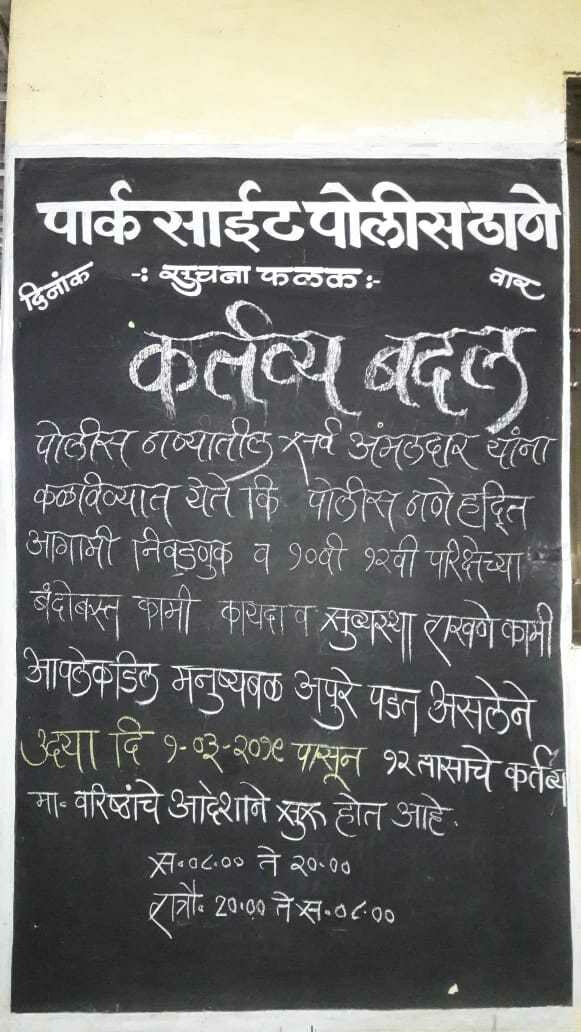 पार्क साईट पोलीस ठाणे
दिनांक -: सुचना फळक :- वार
कर्तव्य बदल
पोलीस ठाण्यातील सर्व अंमलदार यांना
कळविण्यात येते कि पोलीस ठाणे हद्दित
आगामी निवडणुक व १०वी १२वी परिक्षेच्या
बंदोबस्त कामी कायदा व सुव्यस्था राखणे कामी
आपलेकडिल मनुष्यबळ अपुरे पडत असलेने
उद्या दि १-०३-२०१९ पासून १२ तासाचे कर्तव्य
मा. वरिष्ठांचे आदेशाने सुरू होत आहे.
स.०८.०० ते २०.००
रात्रौ. 20.00 ते स.०८.००